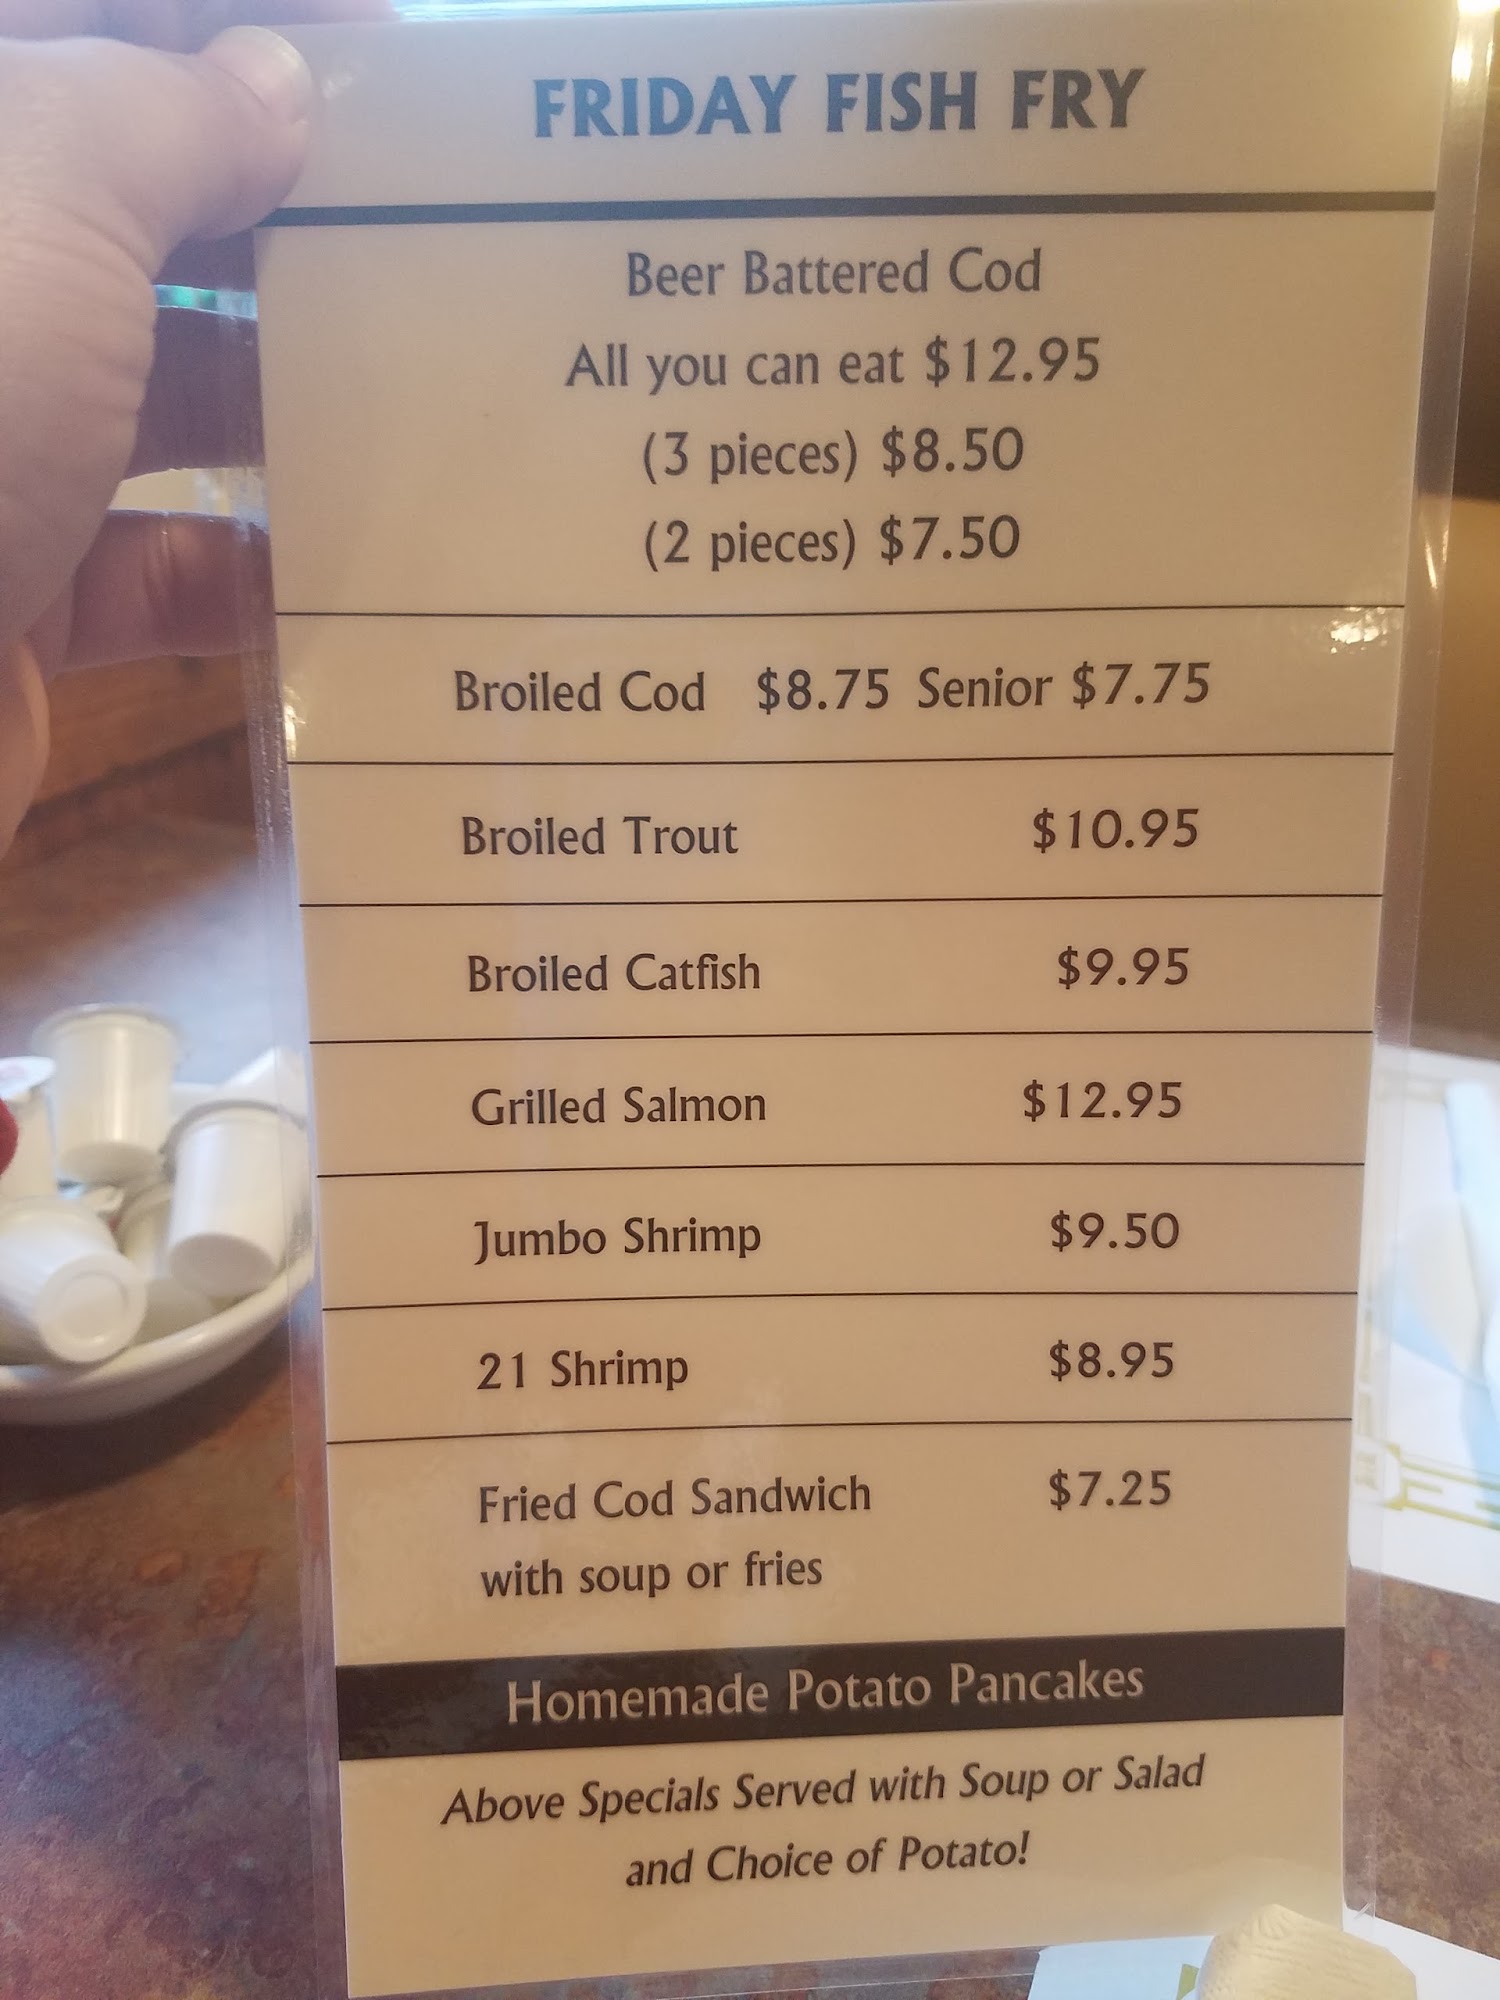 FRIDAY FISH FRY
Beer Battered Cod
All you can eat $12.95
(3 pieces) $8.50
(2 pieces) $7.50
Broiled Cod $8.75 Senior $7.75
Broiled Trout $10.95
Broiled Catfish $9.95
Grilled Salmon $12.95
Jumbo Shrimp $9.50
21 Shrimp $8.95
Fried Cod Sandwich $7.25
with soup or fries
Homemade Potato Pancakes
Above Specials Served with Soup or Salad
and Choice of Potato!